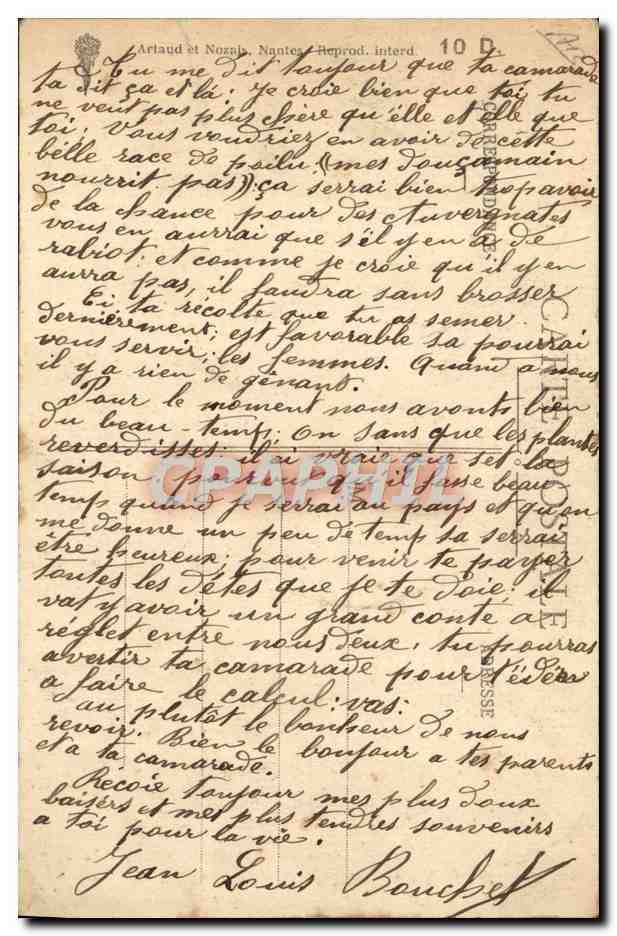 Artaud et Nozais, Nantes. Reprod. interd. 10 D.
Tu me dit toujour que ta camarade
ta dit ça et là: je croie bien que toi, tu
ne veut pas plus chère qu'elle et elle que
toi; Vous voudriez en avoir de cette
belle race de poilu. (mes douçamain
nourrit pas)) ça serrai bien trop avoir
de la chance pour des Auvergnates
vous en aurrai que s'il y en a de
rabiot. et comme je croie qu'il y en
aurra pas, il faudra sans brosser
Ei ta récolte que tu as semer
dernièrement; est favorable sa pourrai
vous servir; les femmes. Quand a nous
il y a rien de génant.
Pour le moment nous avonts bien
du beau-temp; On sans que les plantes
reverdisses. il ai vraie que set la
saison pourvus qu'il fasse beau
temp quand je serrai au pays et qu'on
me donne un peu de temp sa serrai
être heureux; pour venir te payer
toutes les dêtes que je te doie; il
vat y avoir un grand conte a
réglet entre nous deux; tu pourras
avertir ta camarade pour t'éder
a faire le calcul: vas:
au plutôt le bonheur de nous
revoir. Bien le bonjour a tes parents
et a ta camarade.
Reçoie toujour mes plus doux
baisers et mes plus tendres souvenirs
a toi pour la vie.
Jean Louis Bouchet
CORRESPONDANCE
CARTE POSTALE
ADRESSE
CPARPHIL